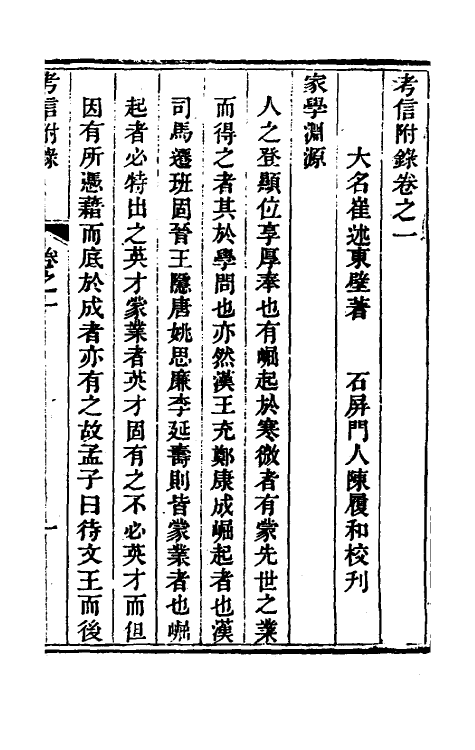 考信附錄卷之一
大名崔述東壁著　石屏門人陳履和校刋
家學淵源
人之登顯位享厚奉也有崛起於寒微者有蒙先世之業
而得之者其於學問也亦然漢王充鄭康成崛起者也漢
司馬遷班固晉王隱唐姚思廉李延壽則皆蒙業者也崛
起者必特出之英才蒙業者英才固有之不必英才而但
因有所憑藉而底於成者亦有之故孟子曰待文王而後
考信附錄　卷之一　一